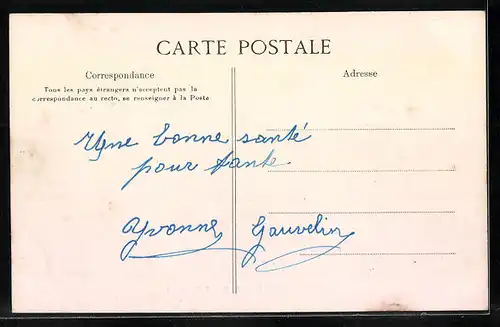 CARTE POSTALE
Correspondance
Tous les pays étrangers n'acceptent pas la
correspondance au recto, se renseigner à la Poste
Adresse
Une bonne santé
pour tante
Yvonne Gauvelin